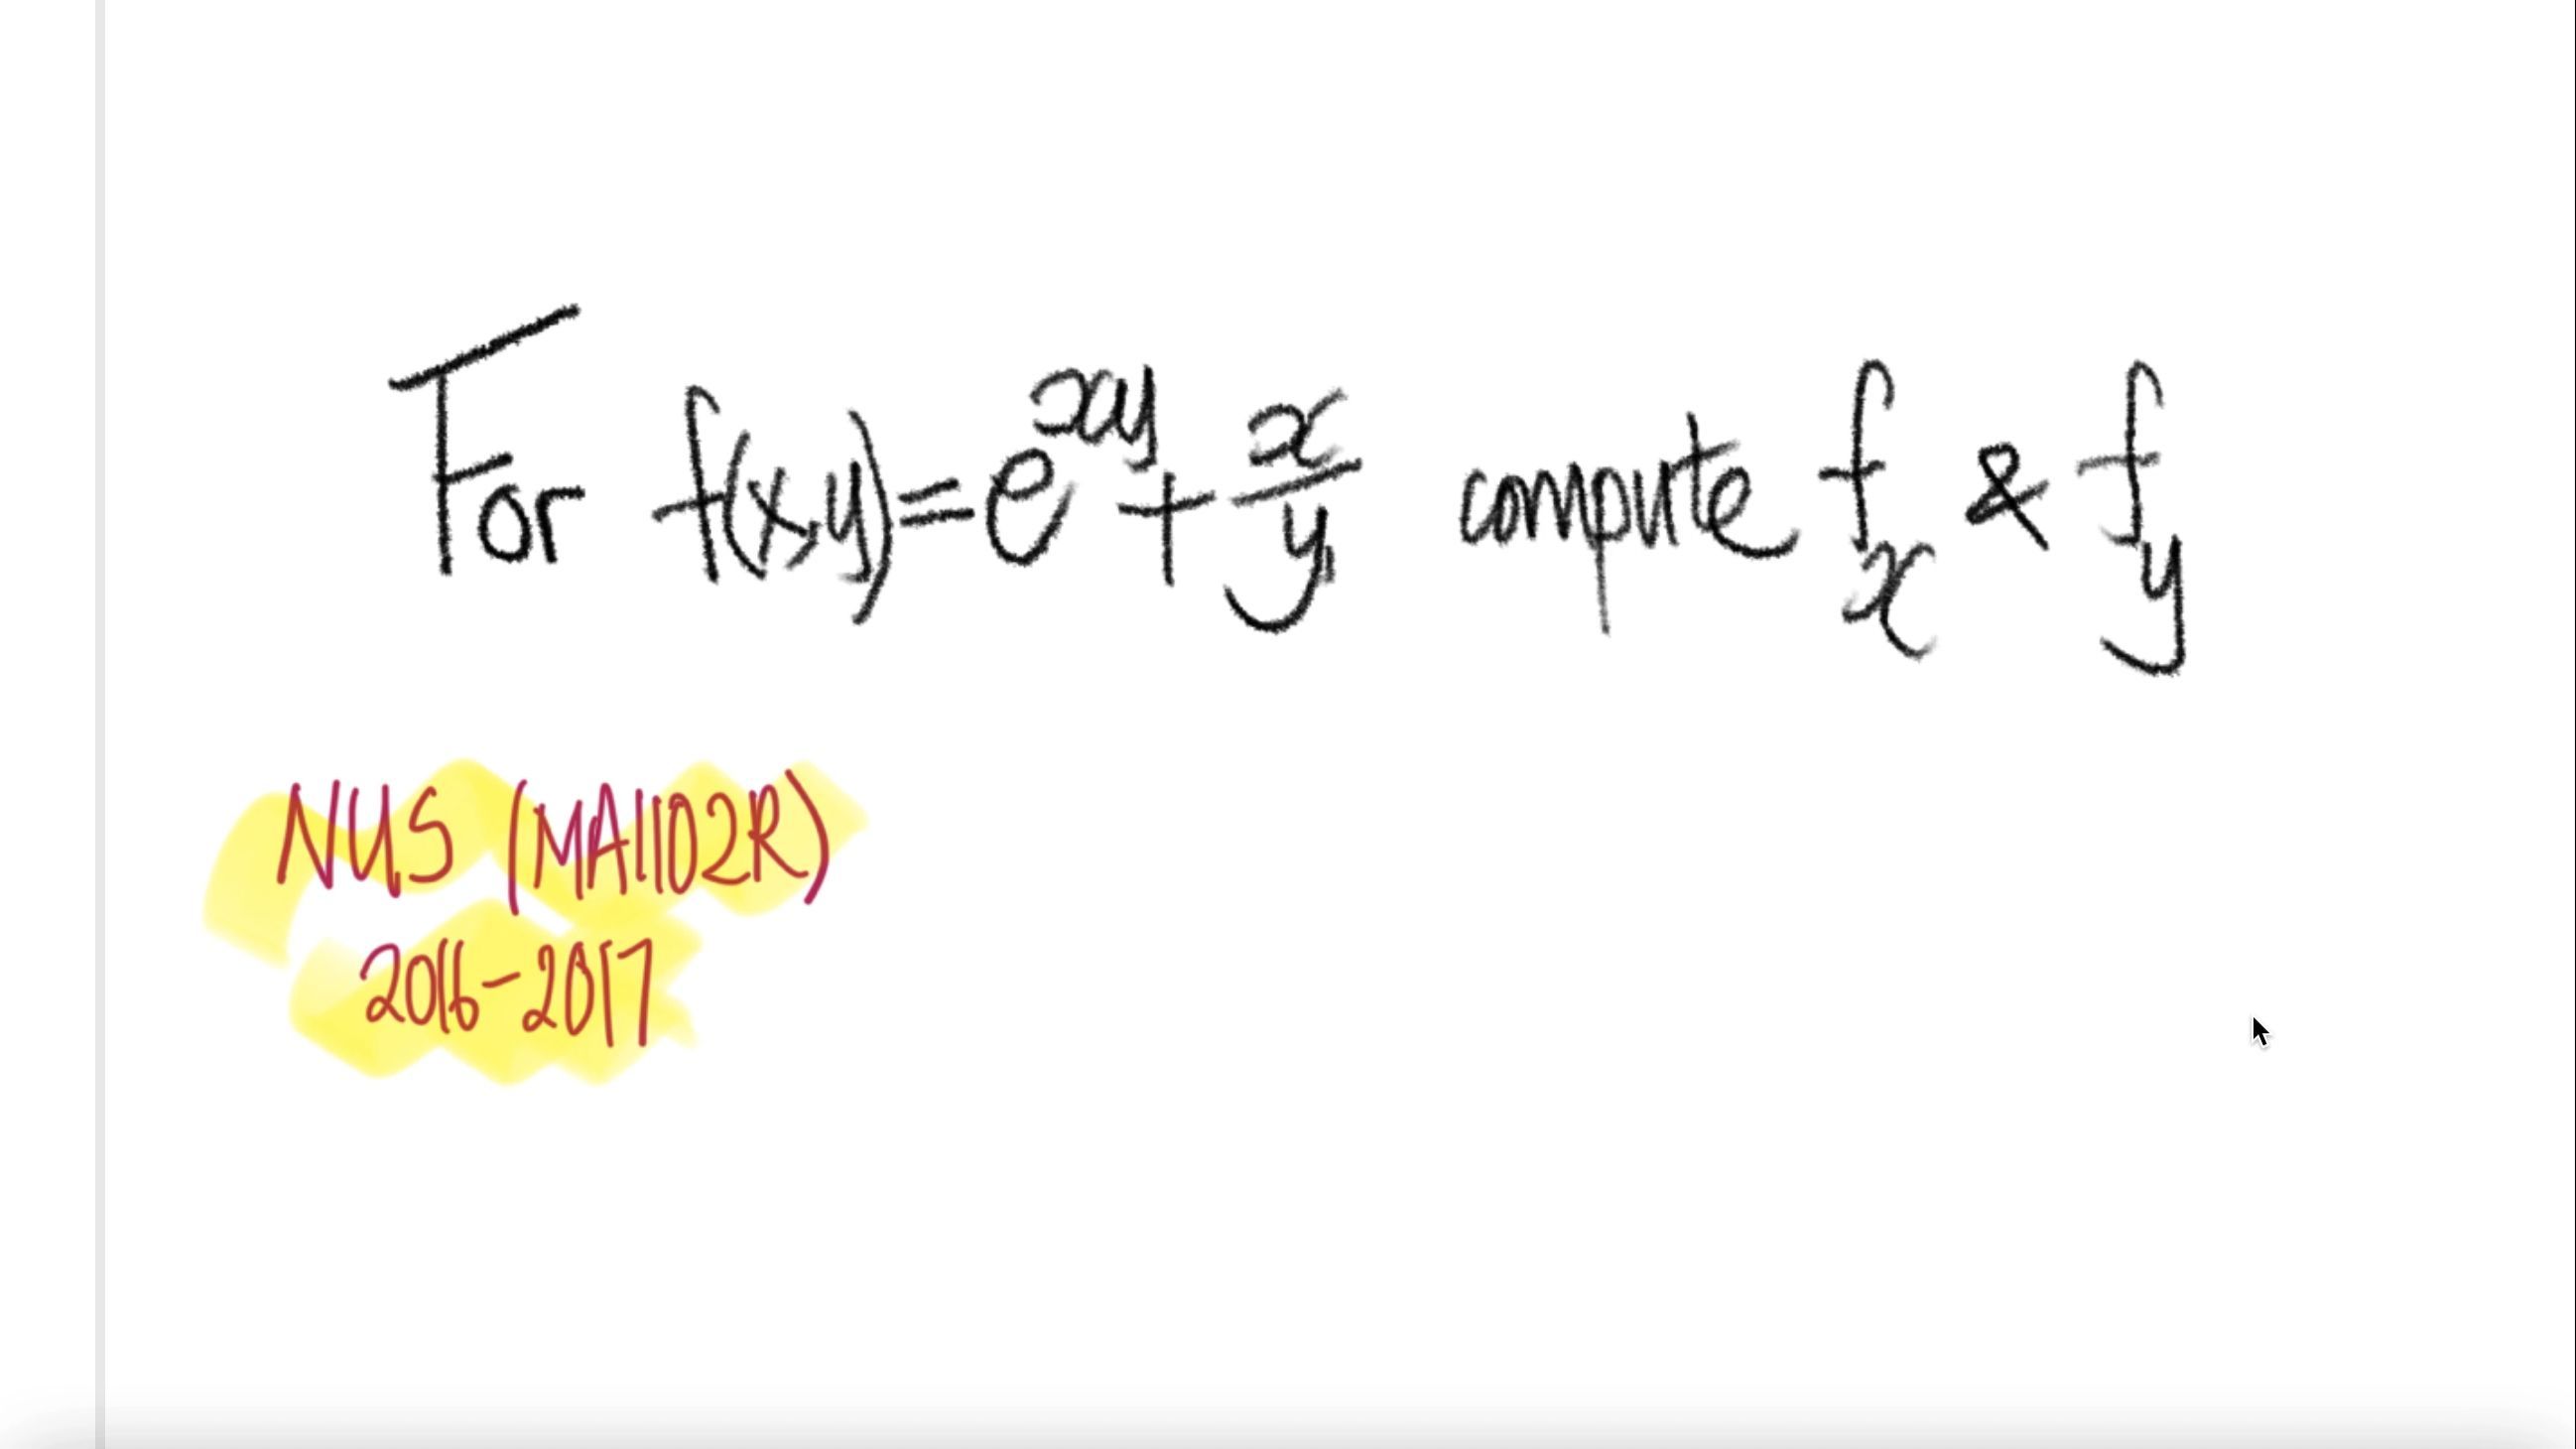 For f(x,y)=e^{xy}+\frac{x}{y} compute f_x & f_y
NUS (MA1102R)
2016-2017